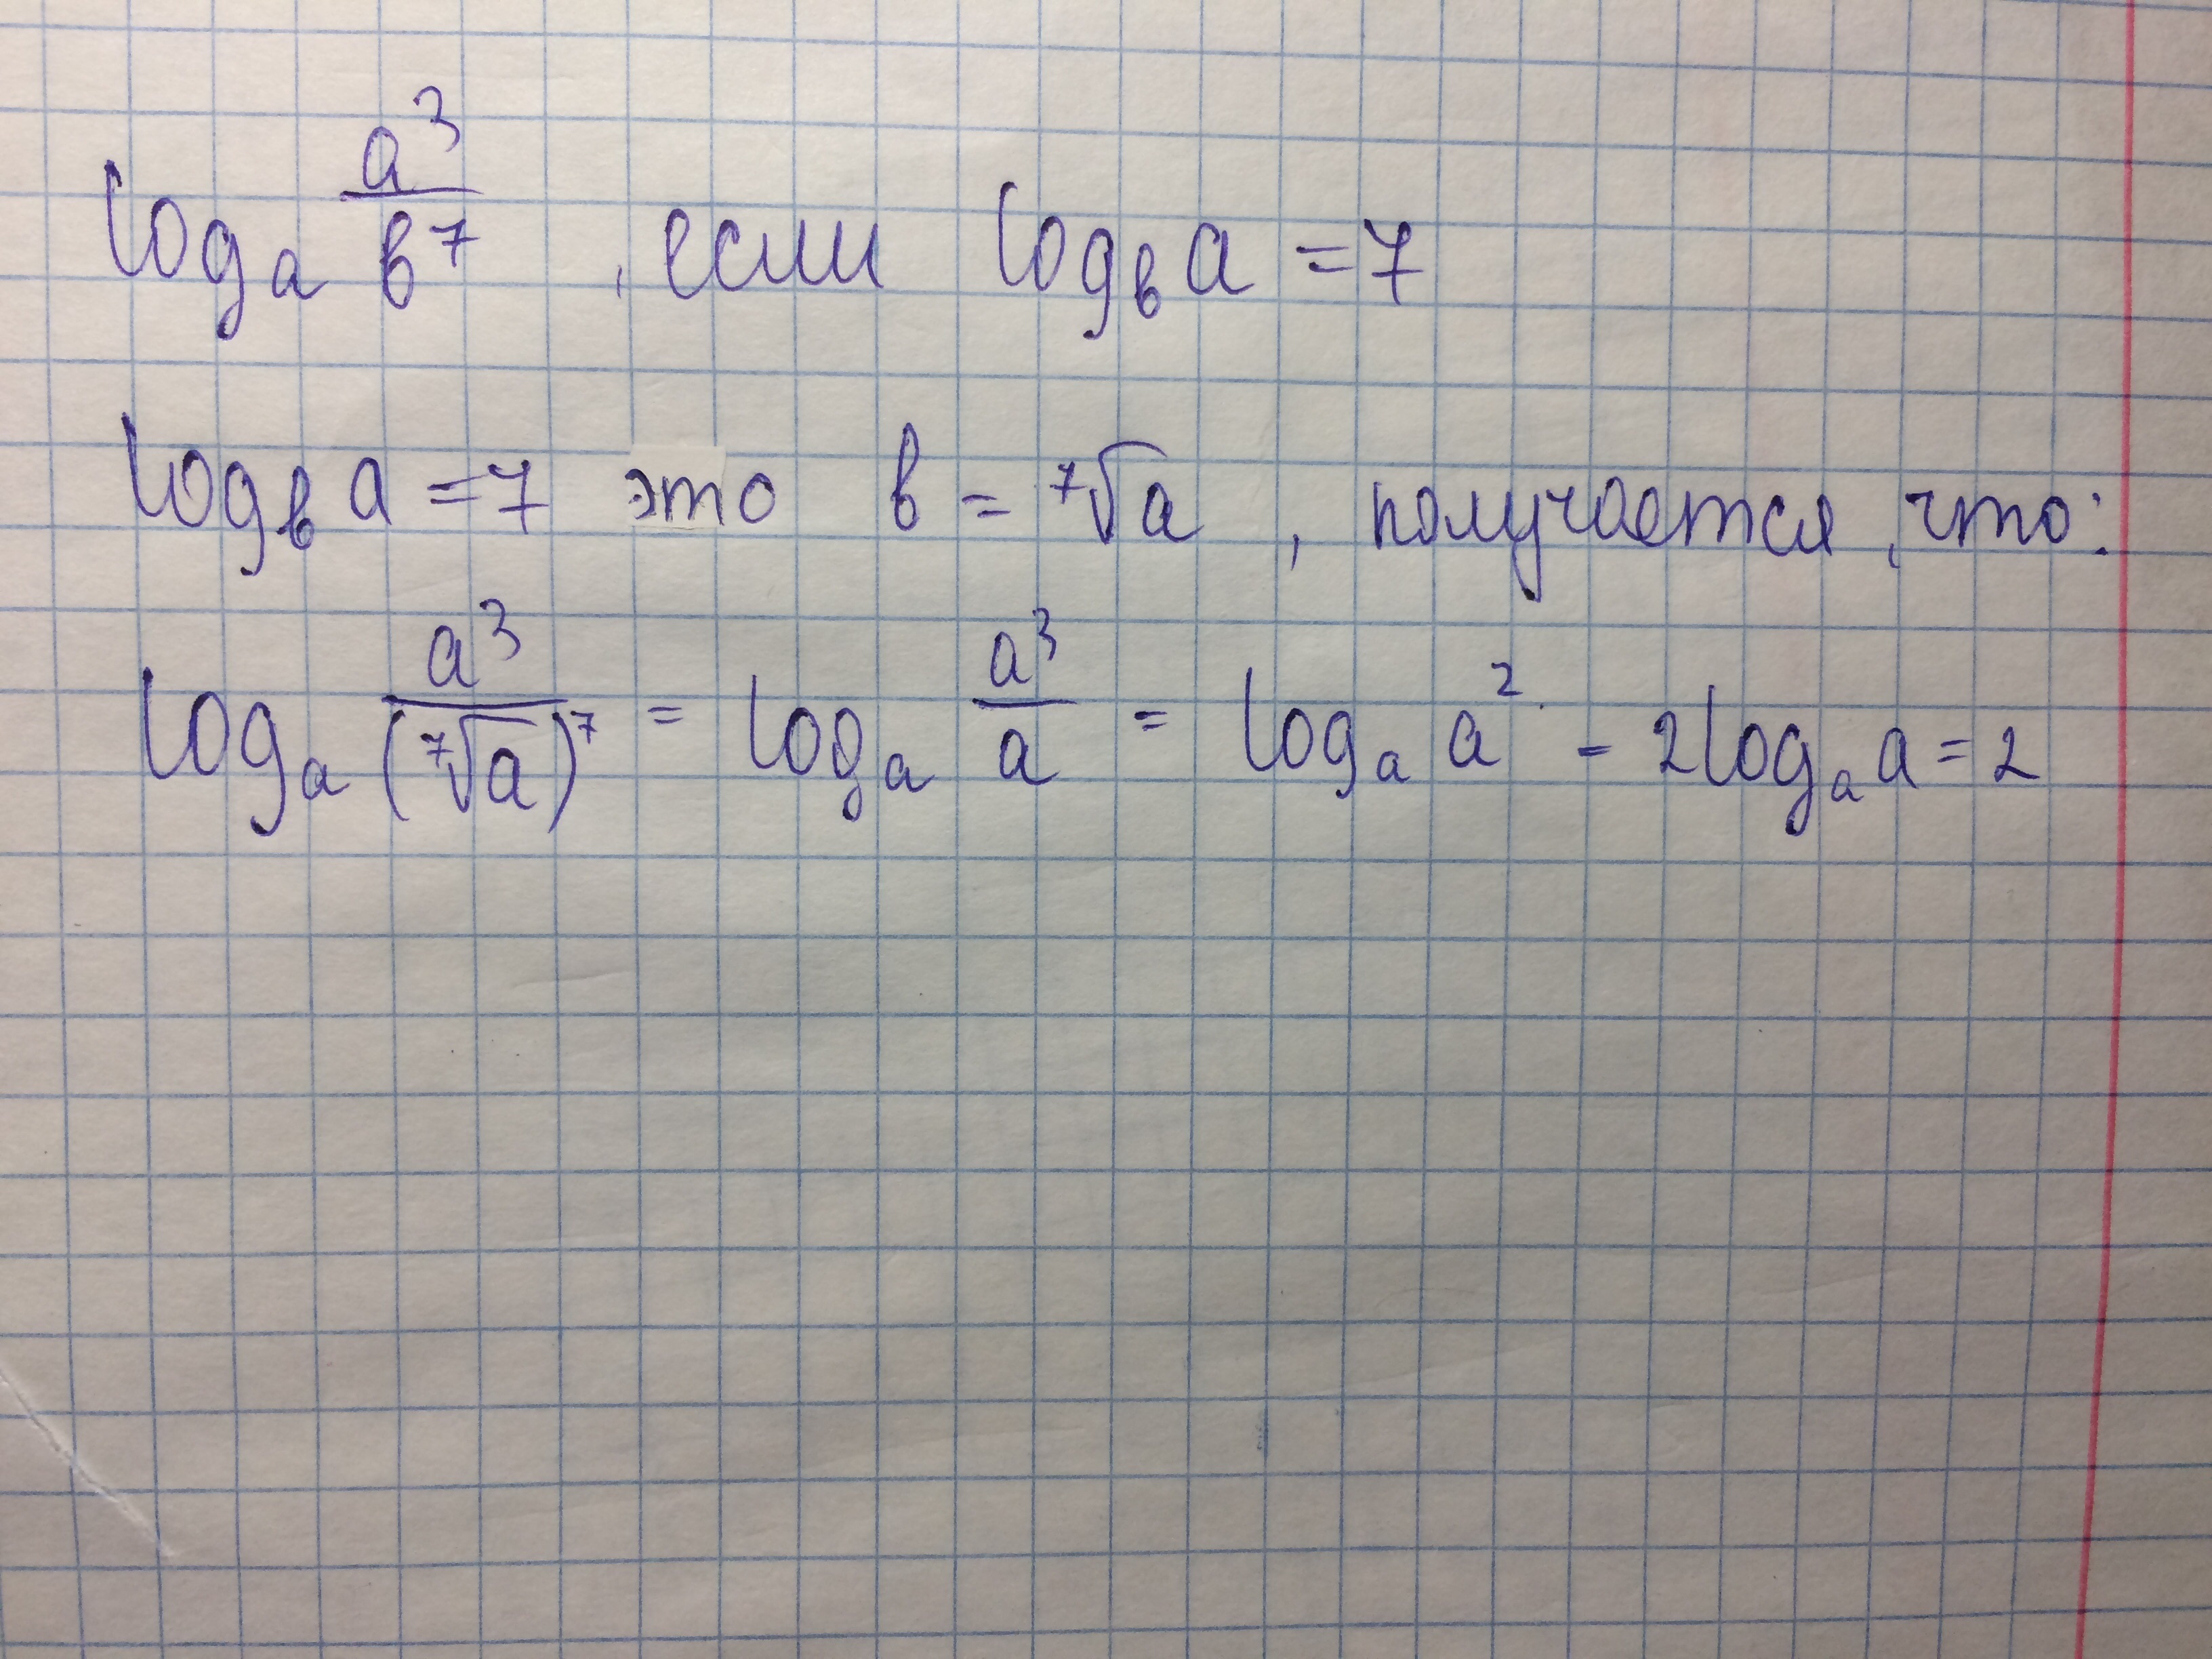 logₐ a³/b⁷, если log_b a = 7
log_b a = 7 это b = ⁷√a, получается, что:
logₐ a³/(⁷√a)⁷ = logₐ a³/a = logₐ a² - 2logₐ a = 2